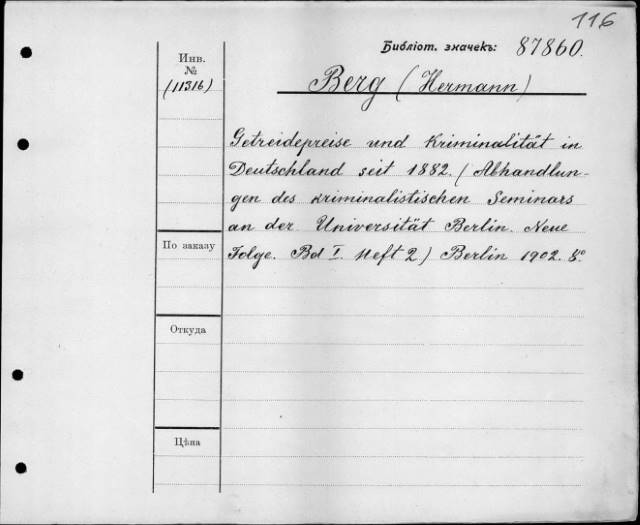 116
Библіот. значекъ: 87860.
Инв.
№
(11316)
Berg (Hermann)
Getreidepreise und Kriminalität in
Deutschland seit 1882. (Abhandlun-
gen des kriminalistischen Seminars
an der Universität Berlin. Neue
Folge. Bd I. Heft 2) Berlin 1902. 8º
По заказу
Откуда
Цѣна